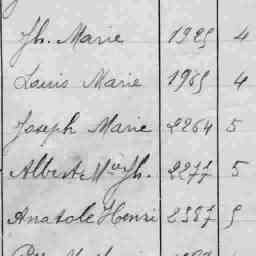 Jh. Marie 1925 4
Louis Marie 1965 4
Joseph Marie 2264 5
Albert Mie Jh. 2277 5
Anatole Henri 2387 5